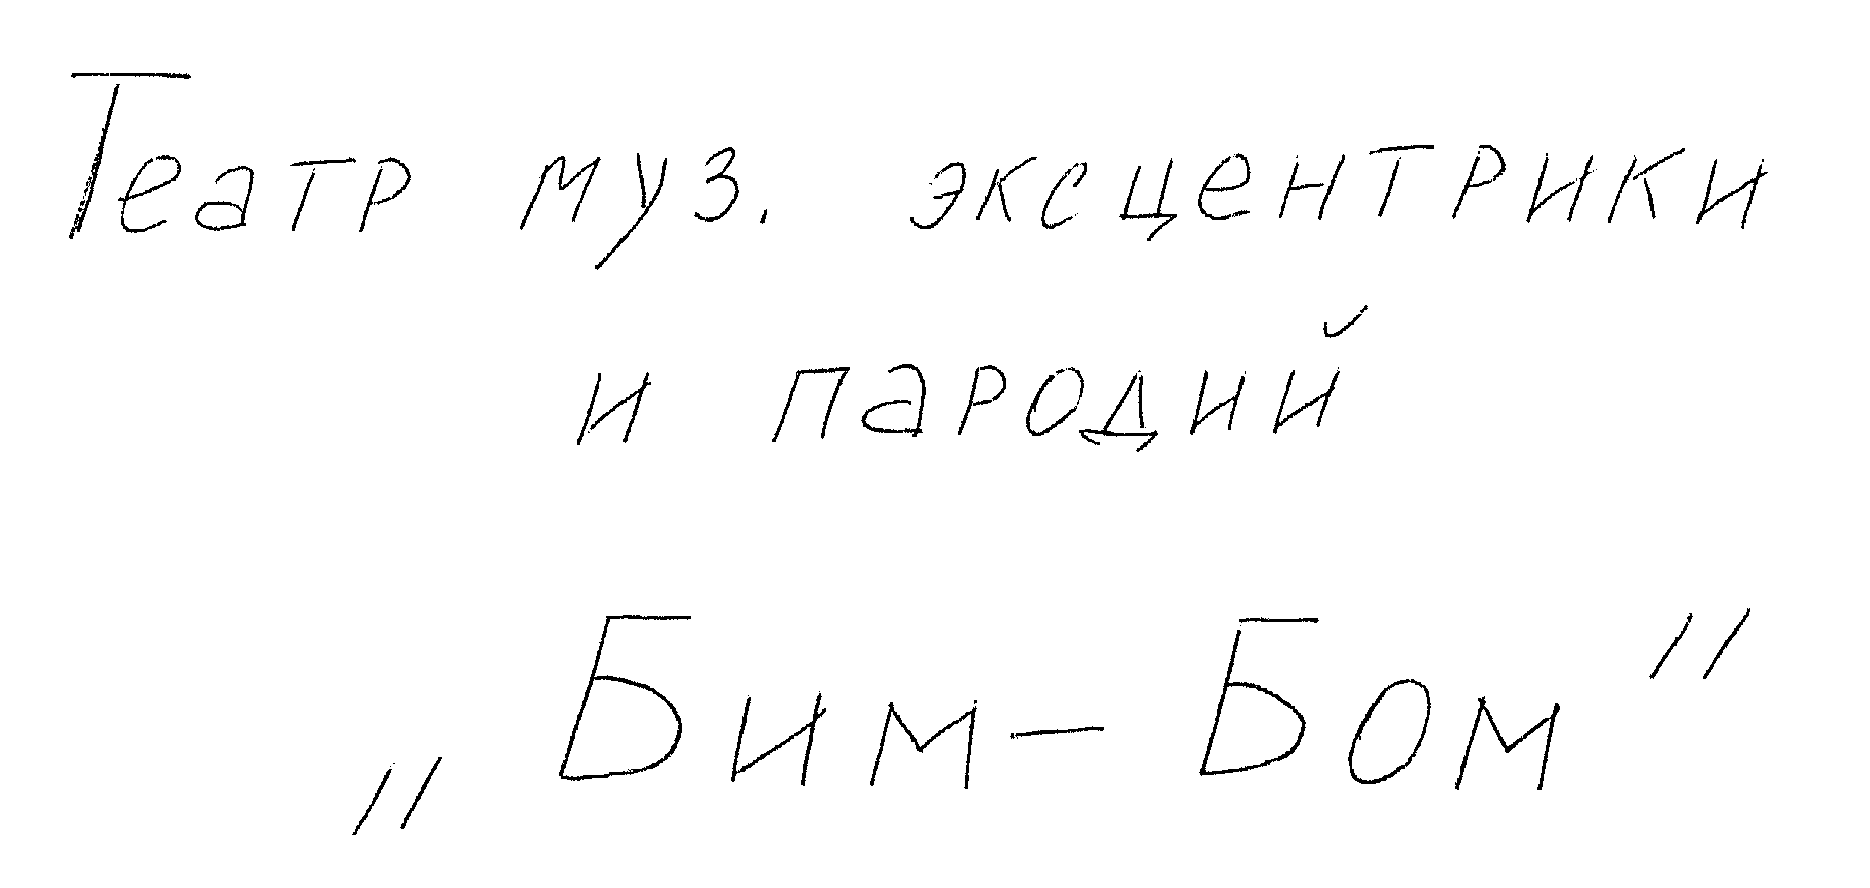 Театр муз. эксцентрики
и пародий
„Бим-Бом"